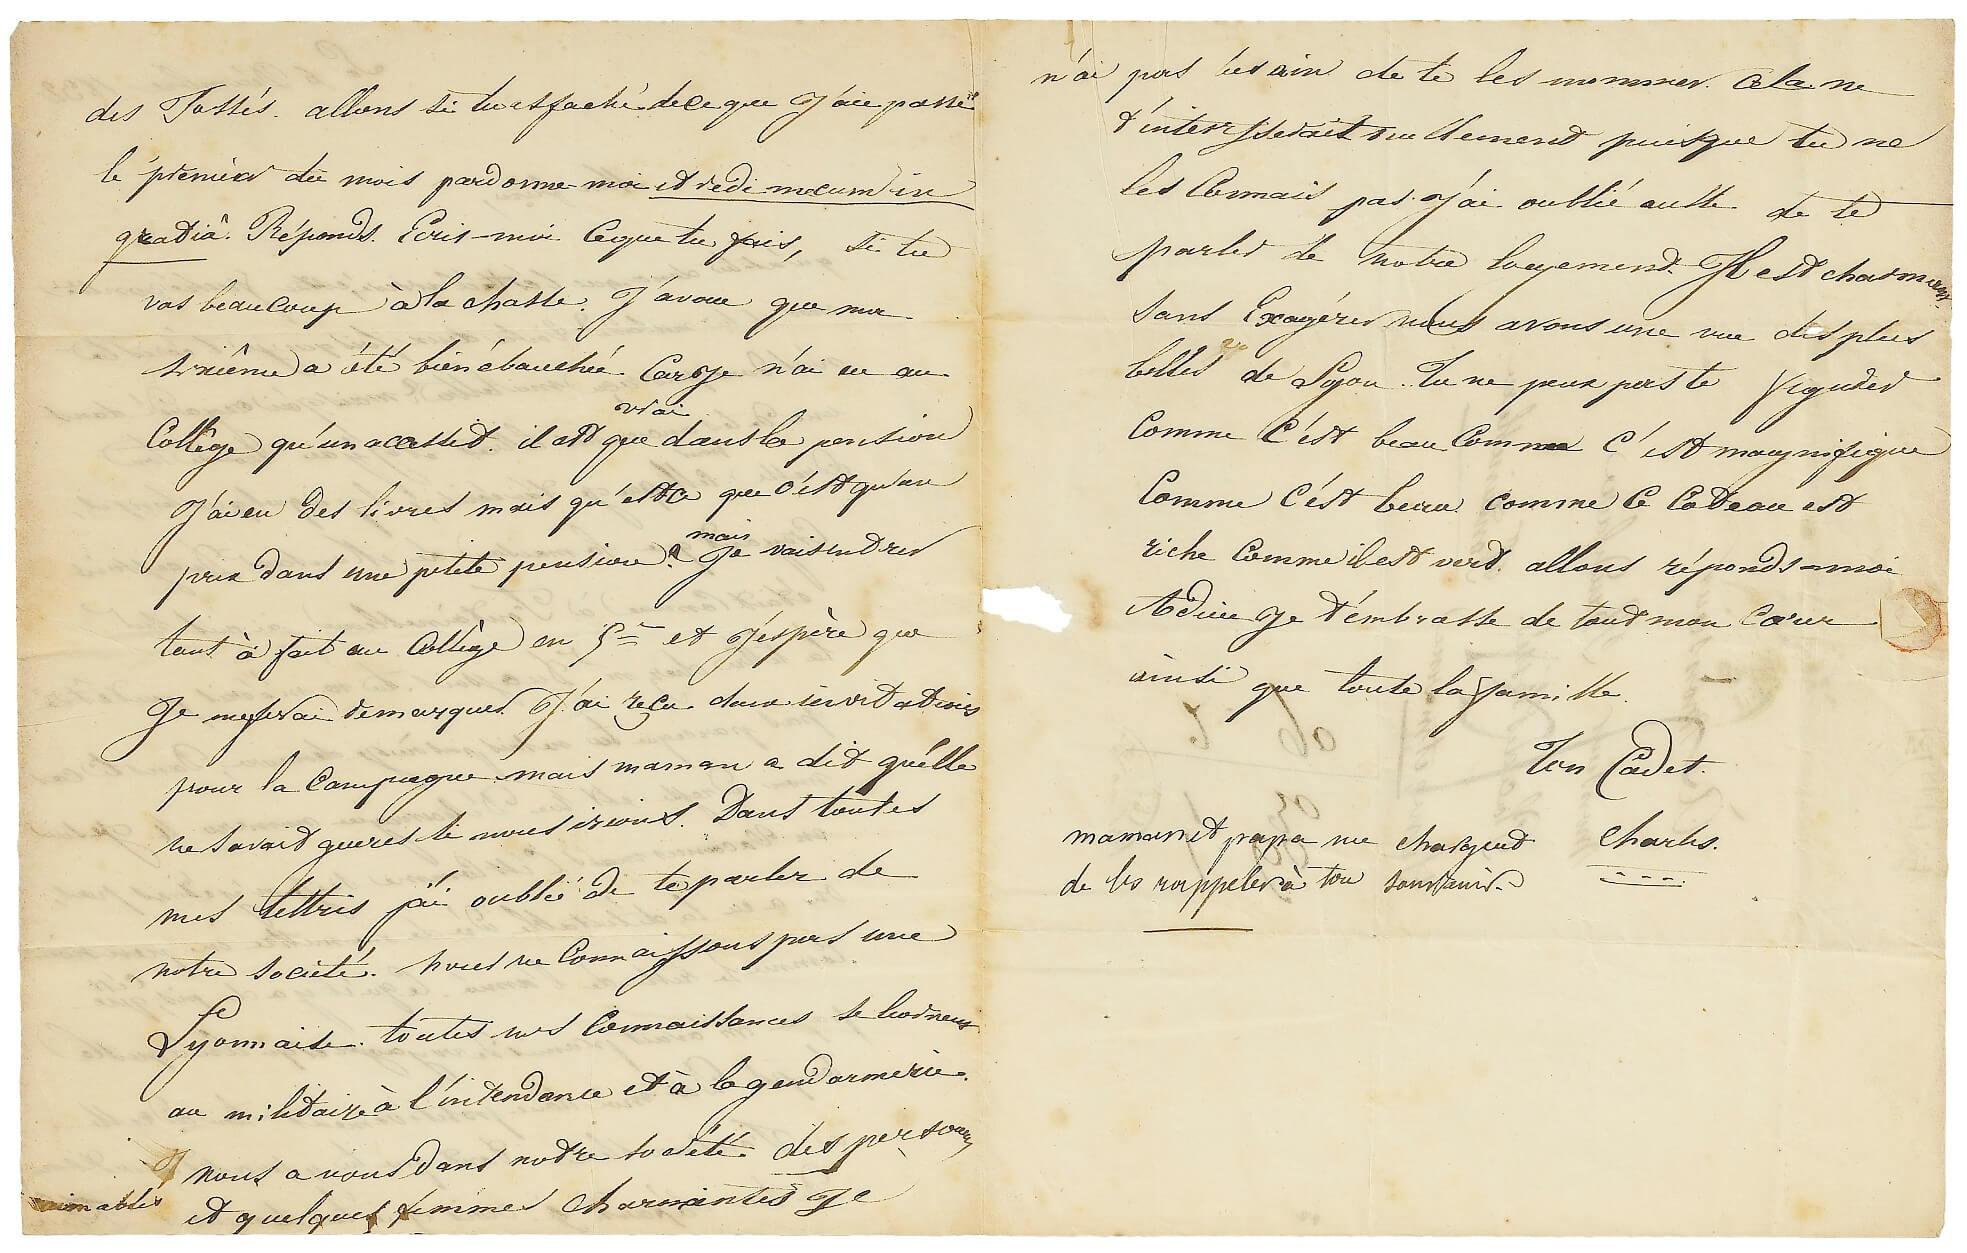 des Fossés. allons si tu es faché de ce que j'aie passé
le premier du mois pardonne-moi et redi mecum in
gratiâ. Réponds. Ecris-moi ce que tu fais, si tu
vas beaucoup à la chasse. J'avoue que ma
sixième a été bien ébauchée. Car je n'ai eu au
Collège qu'un accessit. il est vrai que dans la pension
J'ai eu des livres mais qu'est ce que c'est qu'un
prix dans une petite pension? mais Je vais entrer
tout à fait au Collège en 5me et J'espère que
Je me ferai remarquer. J'ai reçu deux invitations
pour la Campagne mais maman a dit qu'elle
ne savait gueres si nous irions. Dans toutes
mes lettres j'ai oublié de te parler de
notre société. nous ne Connaissons pas une
Lyonnaise. toutes nos Connaissances se bornent
au militaire à l'intendance et à la gendarmerie.
nous avons dans notre société des personnes
aimables et quelques femmes charmantes Je
n'ai pas besoin de te les nommer. Cela ne
t'interesserait nullement puisque tu ne
les Connais pas. J'ai oublié aussi de te
parler de notre logement. Il est charmant
sans Exagérer nous avons une vue des plus
belles de Lyon. Tu ne peux pas te figurer
Comme C'est beau Comme C'est magnifique
Comme C'est beau comme Ce Coteau est
riche Comme il est vert. allons réponds-moi
Adieu Je t'embrasse de tout mon Cœur
ainsi que toute la famille.
Ton Cadet.
Charles.
maman et papa me chargent
de les rappeler à ton souvenir.